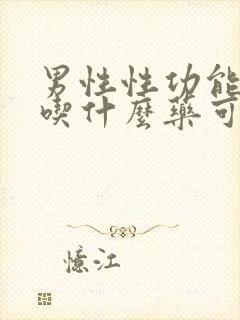 男性性功能
喫什麼藥可
憶江